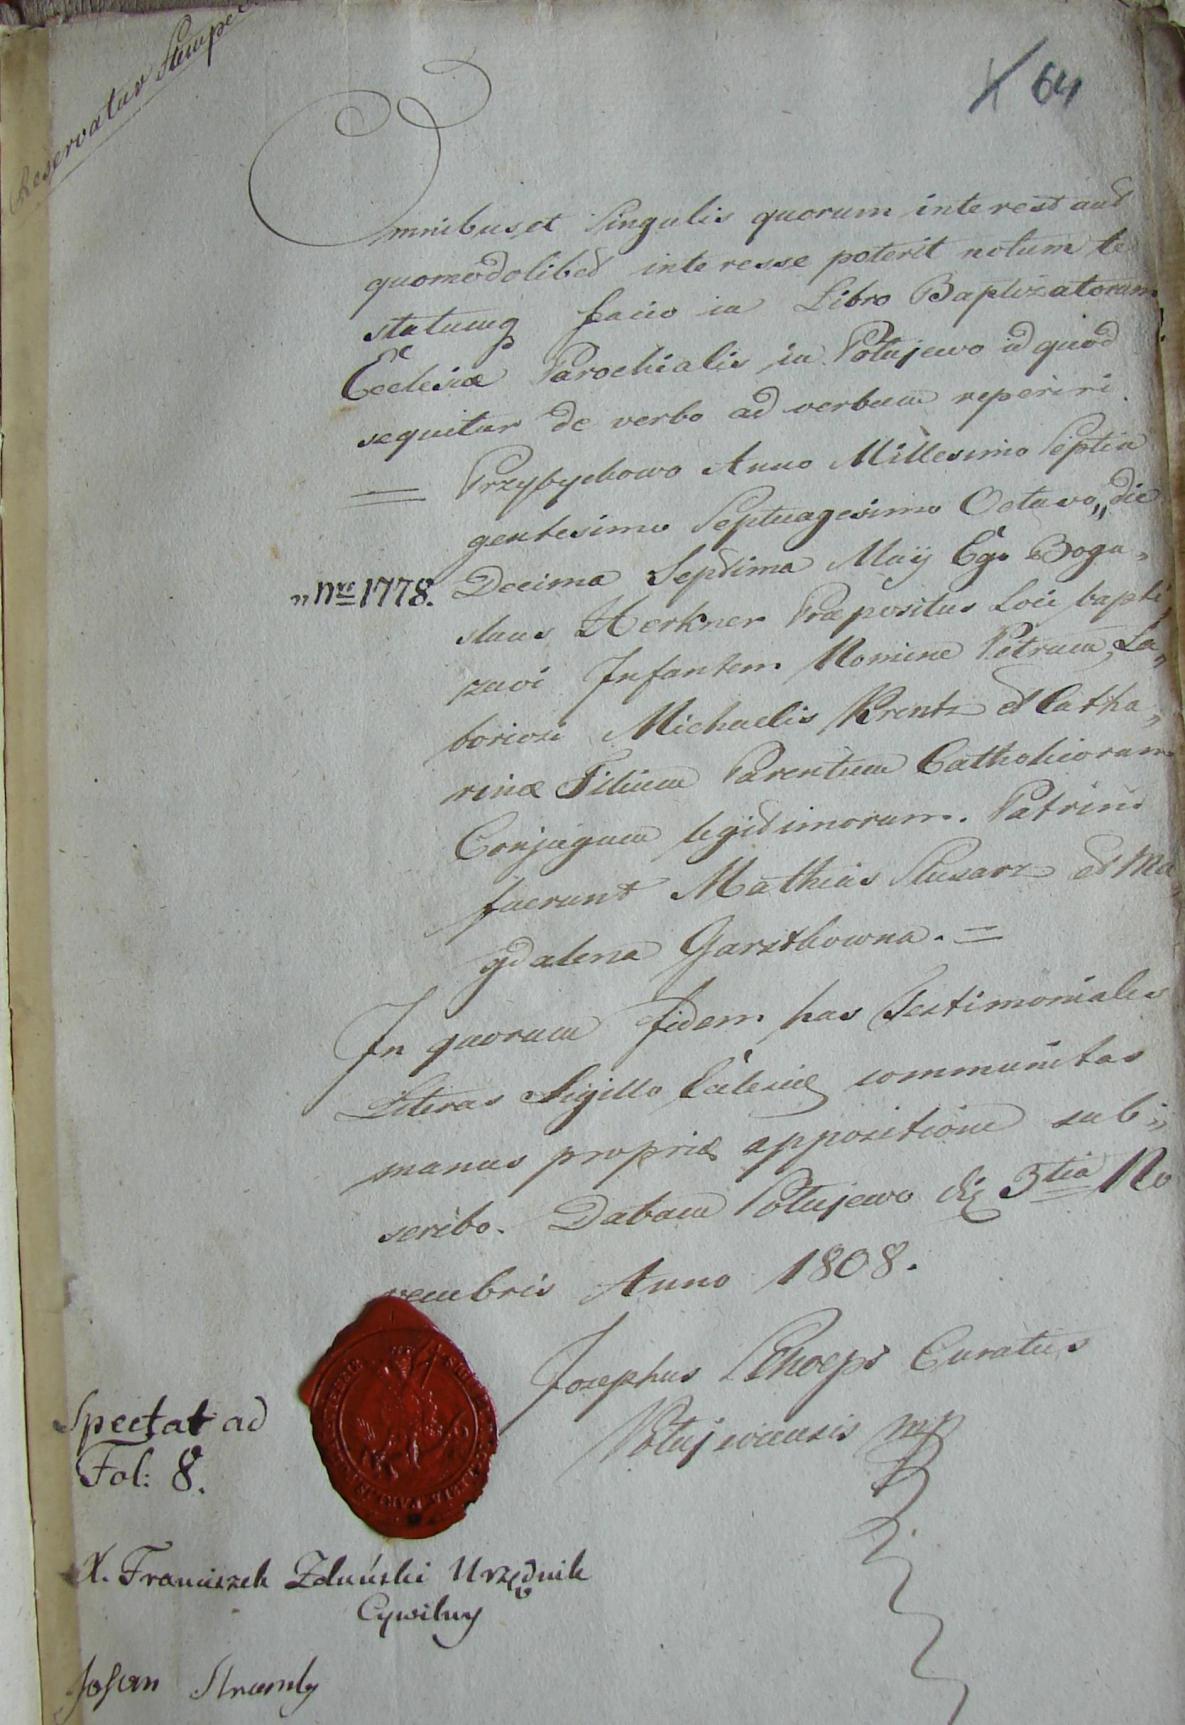 Reservatur Stempel
64
Omnibus et Singulis quorum interest aut
quomodolibet interesse poterit notum te
statumq facio in Libro Baptizatorum
Ecclesiæ Parochialis in Połajewo id quod
sequitur de verbo ad verbum reperiri.
= Przybychowo Anno Millesimo Septin
gentesimo Septuagesimo Octavo,, die
„Nro 1778. Decima Septima Maÿ Ego Bogu„
slaus Herkner Præpositus Loci bapti„
zavi Infantem Nomine Petrum, La„
boriosi Michaelis Krentz et Catha„
rinæ Filium Parentum Catholicorum
Conjugum legitimorum. Patrini
fuerunt Mathias Slusarz et Ma„
gdalena Garstkowna. =
In quorum fidem has Testimoniales
Literas Sigillo Ecclesiæ communitas
manus propriæ appositione sub„
scribo. Dabam Połajewo die 3tia No
vembris Anno 1808.
Josephus Schoeps Curatus
Połajewiensis mp
Spectat ad
Fol: 8.
X. Franciszek Zduński Urzędnik
Cywilny
Johan